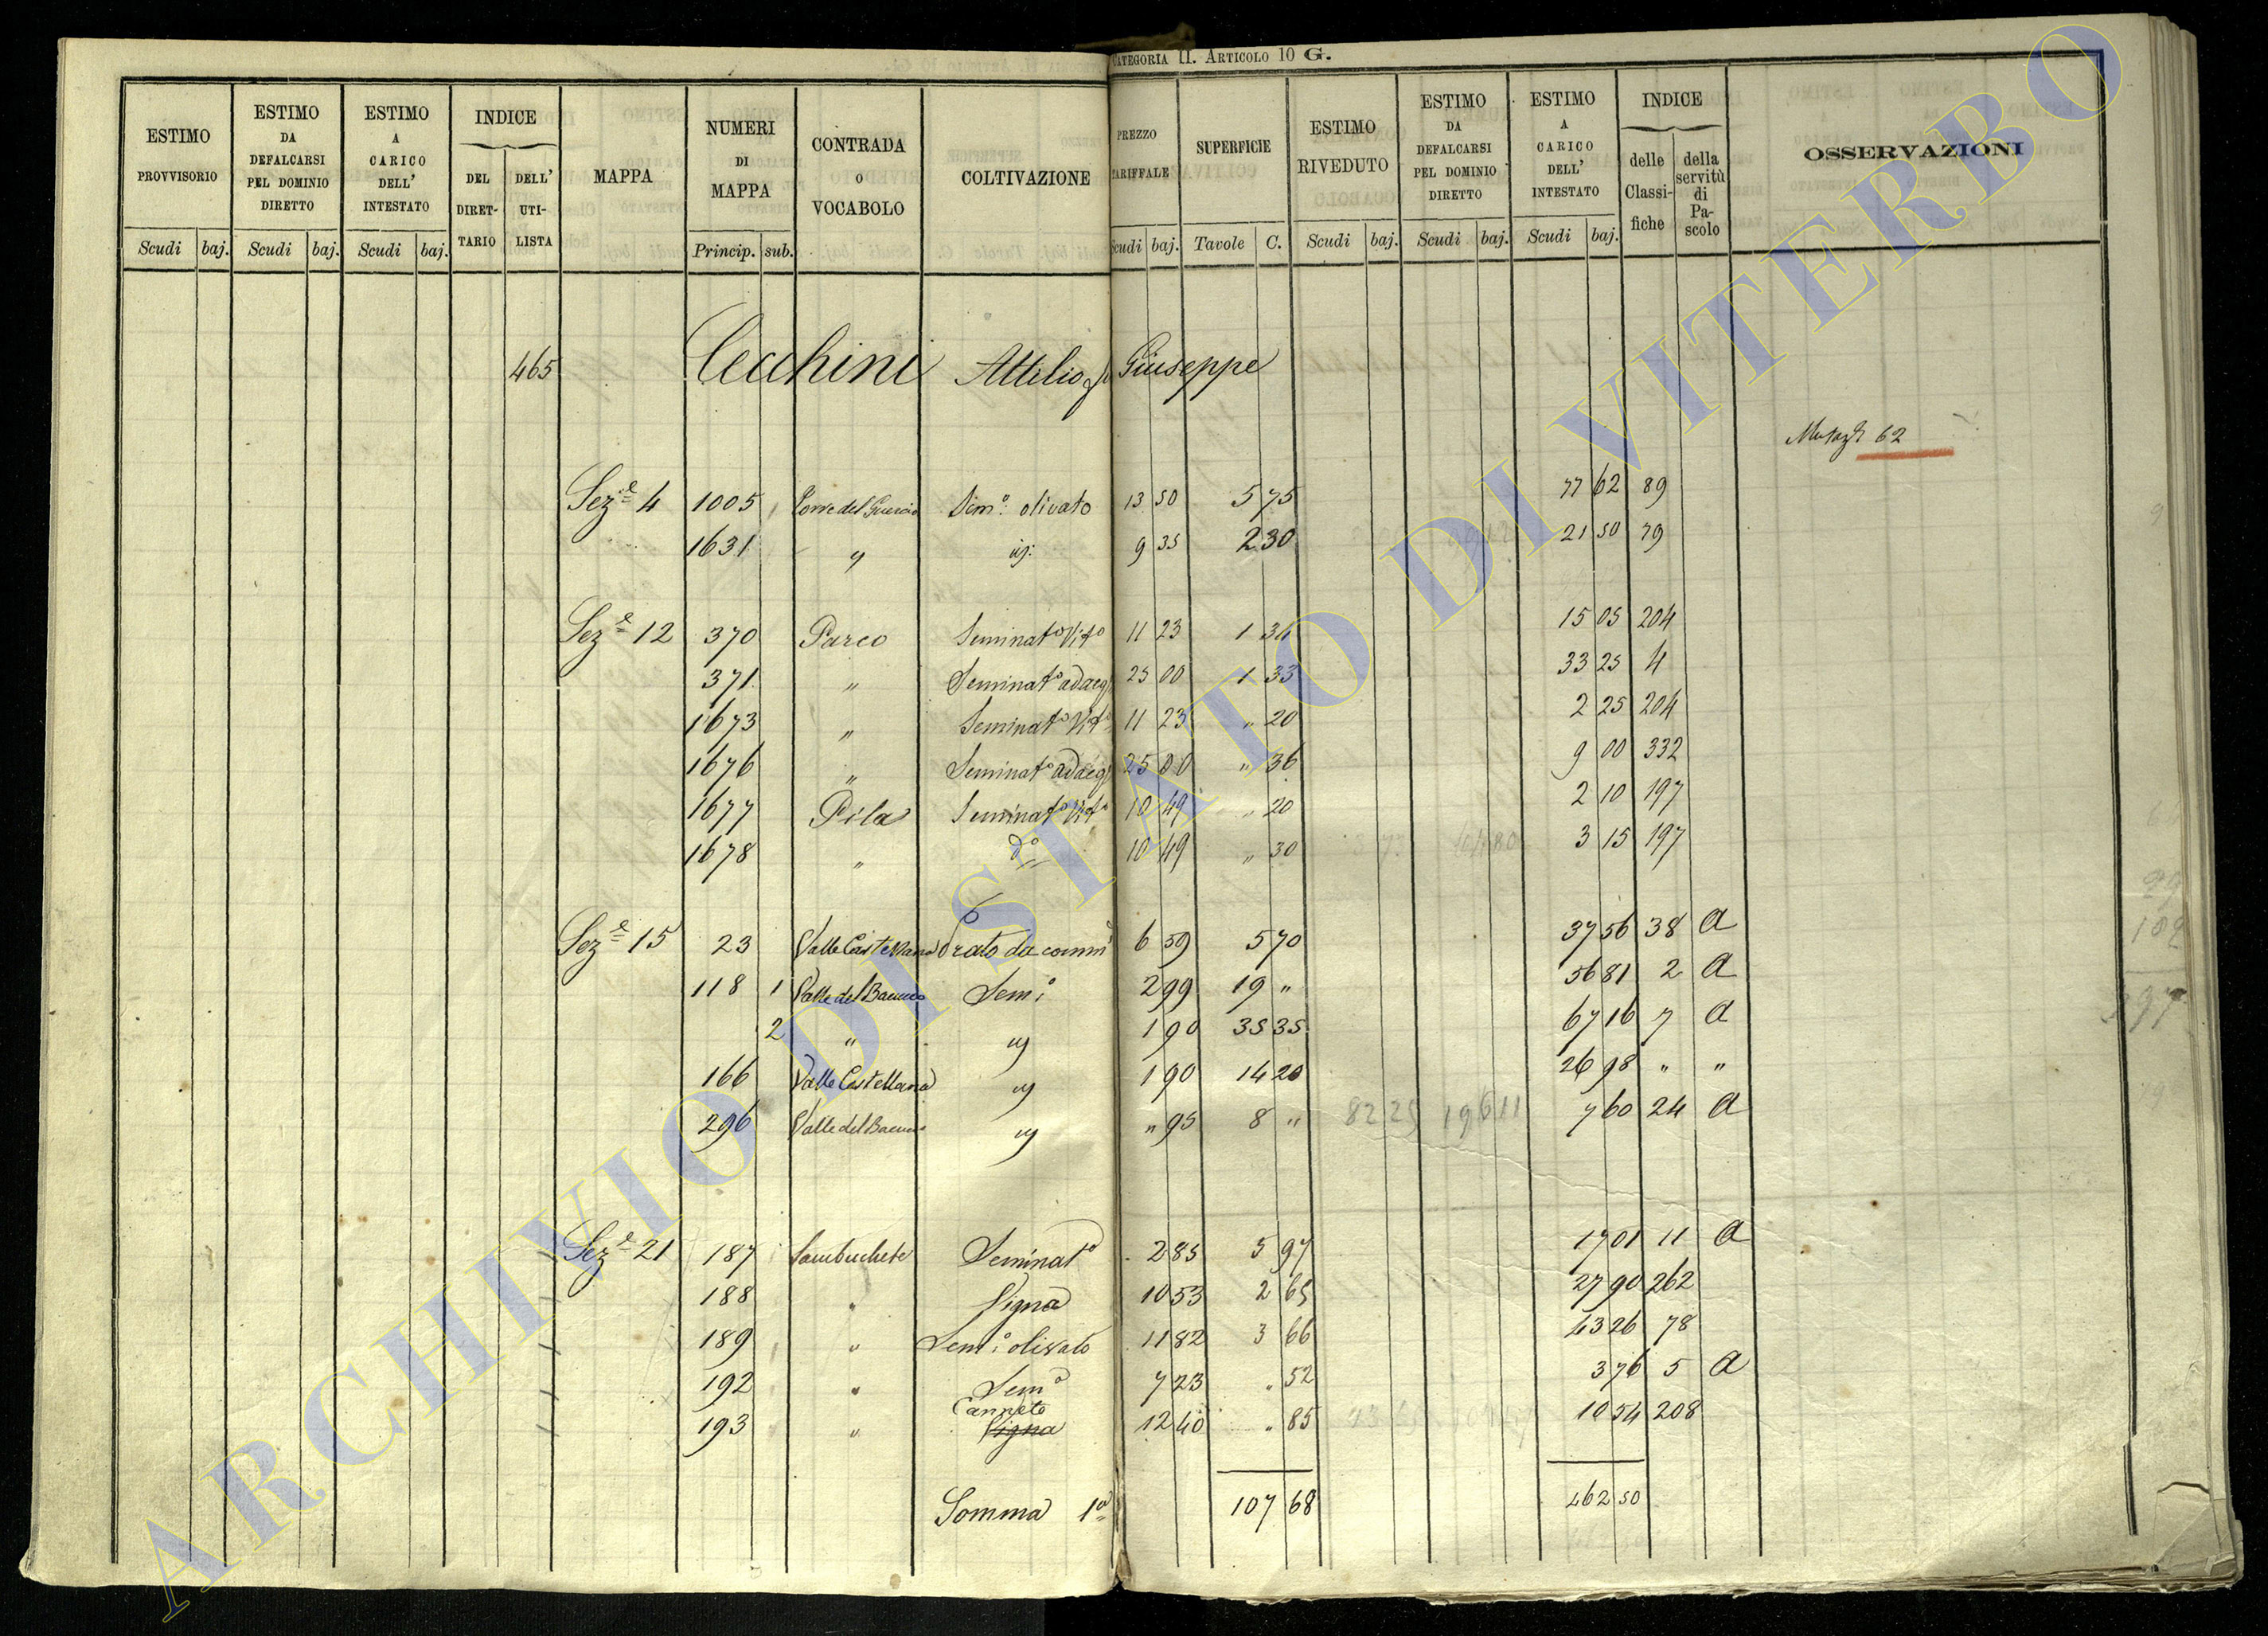 CATEGORIA II. ARTICOLO 10 G.
ESTIMO PROVVISORIO Scudi baj.
ESTIMO DA DEFALCARSI PEL DOMINIO DIRETTO Scudi baj.
ESTIMO A CARICO DELL' INTESTATO Scudi baj.
INDICE DEL DIRETTARIO DELL' UTILISTA
MAPPA
NUMERI DI MAPPA Princip. sub.
CONTRADA O VOCABOLO
COLTIVAZIONE
PREZZO TARIFFALE Scudi baj.
SUPERFICIE Tavole C.
ESTIMO RIVEDUTO Scudi baj.
ESTIMO DA DEFALCARSI PEL DOMINIO DIRETTO Scudi baj.
ESTIMO A CARICO DELL' INTESTATO Scudi baj.
INDICE delle Classifiche della servitù di Pascolo
OSSERVAZIONI
465 Cecchini Attilio Giuseppe
62
Sez.e 4 1005 Torre del Guercio Sem.o olivato 13 50 5 75 77 62 89
1631 " 9 35 2 30 21 50 79
Sez.e 12 370 Parco Seminat.o Vit.o 11 23 1 34 15 05 204
371 " Seminat.o adacq 25 00 1 33 33 25 4
1673 " Seminat.o Vit.o 11 23 " 20 2 25 204
1676 " Seminat.o adacq 25 00 " 36 9 00 332
1677 Pila Seminat.o Vit.o 10 49 " 20 2 10 197
1678 " d.o 10 49 " 30 3 15 197
Sez.e 15 23 Valle Castellana Prato da comm 6 59 5 70 37 56 38 a
118 1 Valle del Sem.o 2 99 19 " 56 81 2 a
2 " 1 90 35 35 67 16 7 a
166 Valle Castellana 1 90 14 20 26 98 " "
296 Valle del " 95 8 " 82 25 196 11 7 60 24 a
Sez.e 21 187 Sambuchete Seminat.o 2 85 5 97 17 01 11 a
188 " Vigna 10 53 2 65 27 90 262
189 " Sem.o olivato 11 82 3 66 43 26 78
192 " Sem.o 7 23 " 52 3 76 5 a
Canneto
193 " Vigna 12 40 " 85 10 54 208
Somma 1a 107 68 462 50
ARCHIVIO DI STATO DI VITERBO